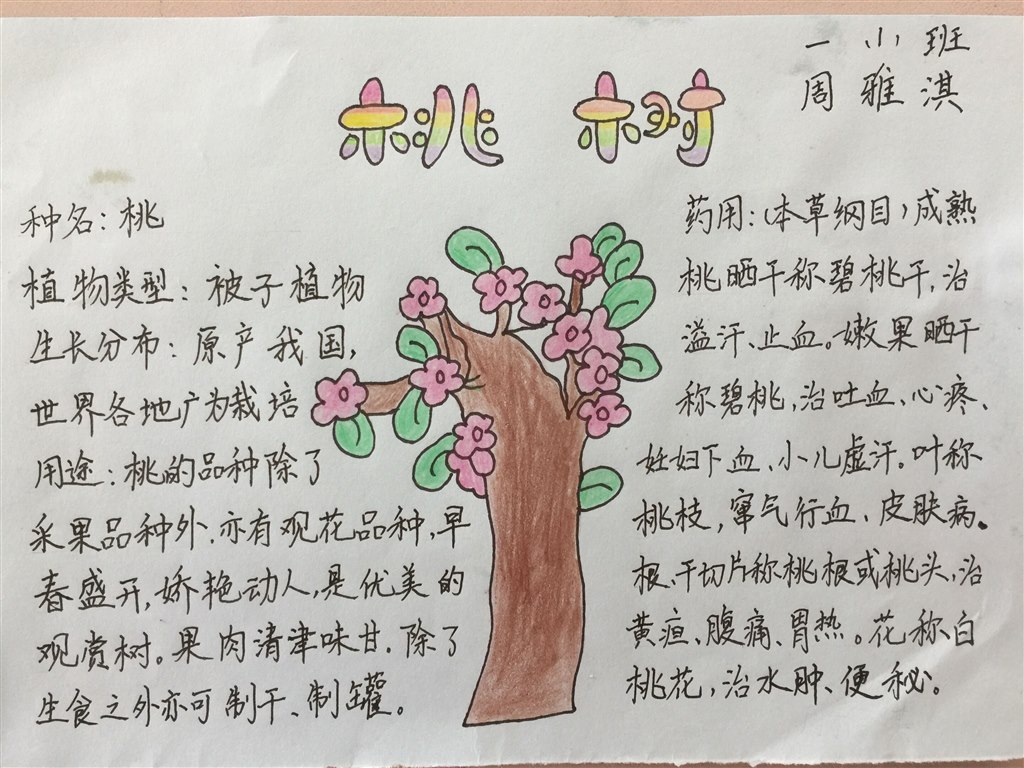 一小班
周雅淇
桃树
种名：桃
植物类型：被子植物
生长分布：原产我国，
世界各地广为栽培
用途：桃的品种除了
采果品种外.亦有观花品种，早
春盛开，娇艳动人，是优美的
观赏树。果肉清津味甘.除了
生食之外亦可制干、制罐。
药用：（本草纲目）成熟
桃晒干称碧桃干，治
溢汗、止血。嫩果晒干
称碧桃，治吐血、心疼、
妊妇下血、小儿虚汗。叶称
桃枝，窜气行血、皮肤病。
根、干切片称桃根或桃头，治
黄疸、腹痛、胃热。花称白
桃花，治水肿、便秘。